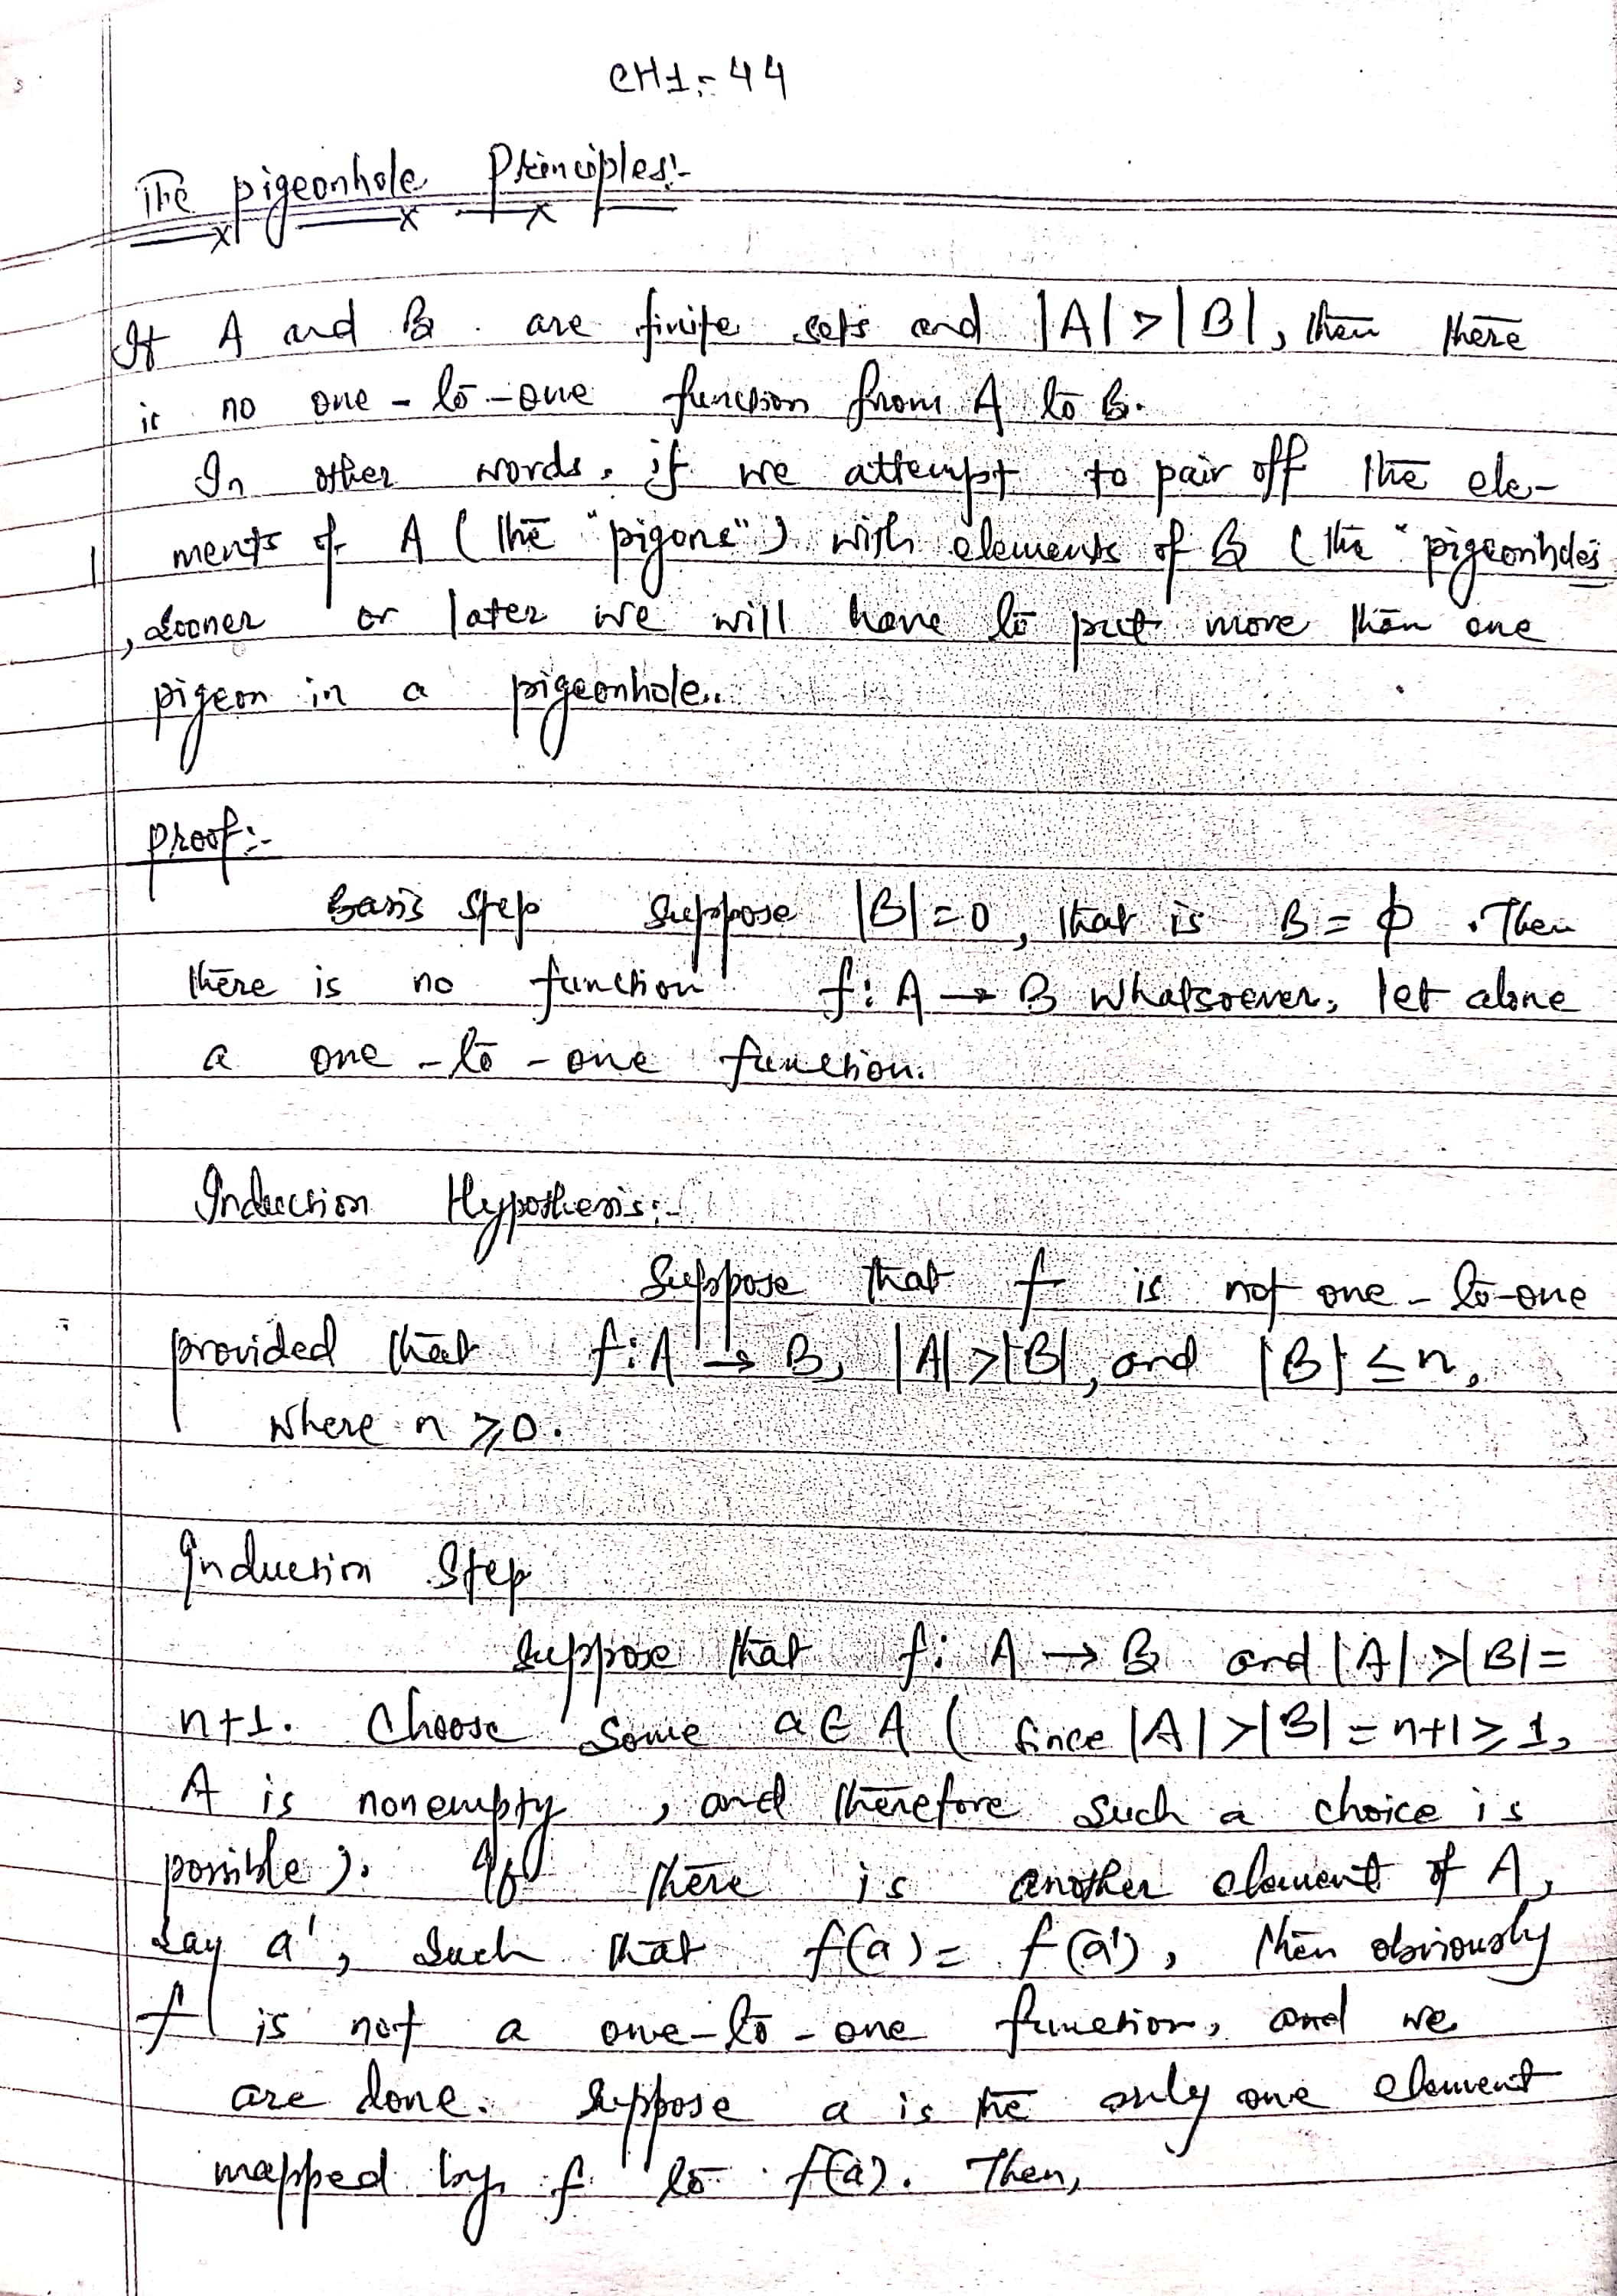 CH1:- 44
The pigeonhole Principles:-
If A and B are finite sets and |A| > |B|, then there
is no one-to-one function from A to B.
In other words, if we attempt to pair off the ele-
ments of A (the "pigons") with elements of B (the "pigeonholes
, sooner or later we will have to put more than one
pigeon in a pigeonhole..
proof:-
Basis step Suppose |B|=0, that is B = ϕ. Then
there is no function f: A → B whatsoever, let alone
a one-to-one function.
Induction Hypothesis:-
Suppose that f is not one-to-one
provided that f: A → B, |A| > |B|, and |B| ≤ n,
where n ≥ 0.
Induction Step
Suppose that f: A → B and |A| > |B| =
n+1. Choose some a ∈ A ( Since |A| > |B| = n+1 ≥ 1,
A is nonempty, and therefore such a choice is
possible ). If there is another element of A,
say a', such that f(a) = f(a'), then obviously
f is not a one-to-one function, and we
are done. Suppose a is the only one element
mapped by f to f(a). Then,